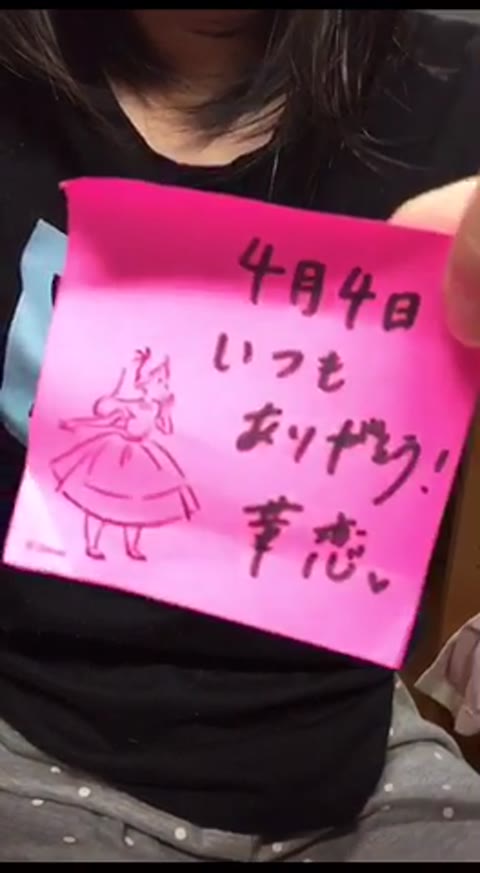 4月4日
いつも
ありがとう!
華恋♥